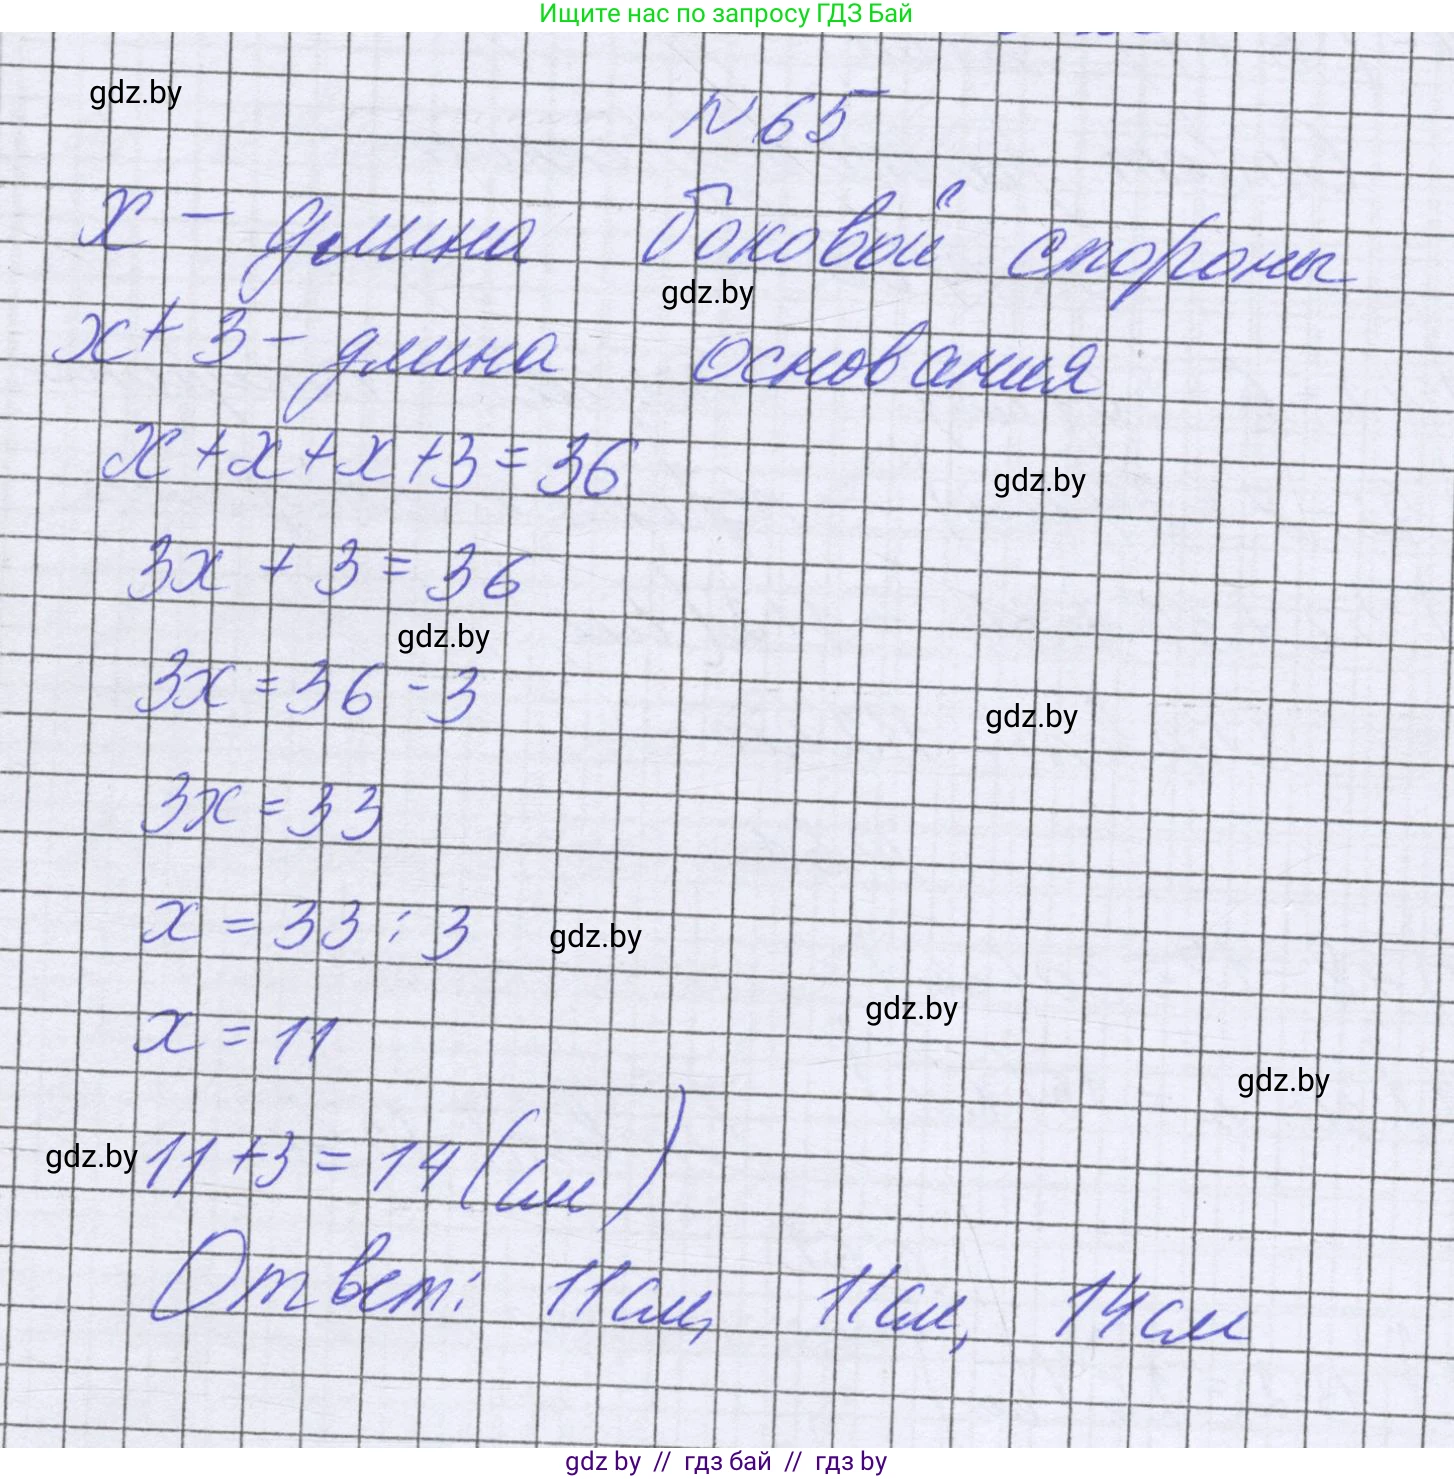 Ищите нас по запросу ГДЗ Бай
gdz.by
N65
x - длина боковой стороны
gdz.by
x+3 - длина основания
x+x+x+3=36
gdz.by
3x + 3 = 36
gdz.by
3x = 36 - 3
gdz.by
3x = 33
x = 33 : 3
gdz.by
gdz.by
x = 11
gdz.by
gdz.by
11+3 = 14 (см)
Ответ: 11см, 11см, 14см
gdz by // гдз бай // гдз by